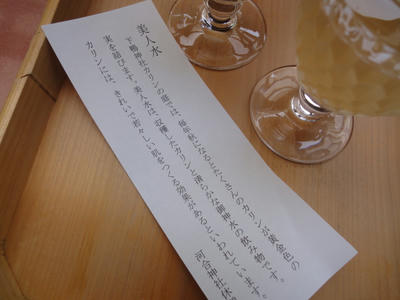 美人水
下鴨神社カリンの庭では、毎年秋になるとたくさんのカリンが黄金色の
実を結びます。美人水は、収穫したカリンと清らかな御神水の飲み物です。
カリンには、きれいで若々しい肌をつくる効果があるといわれています
河合神社休